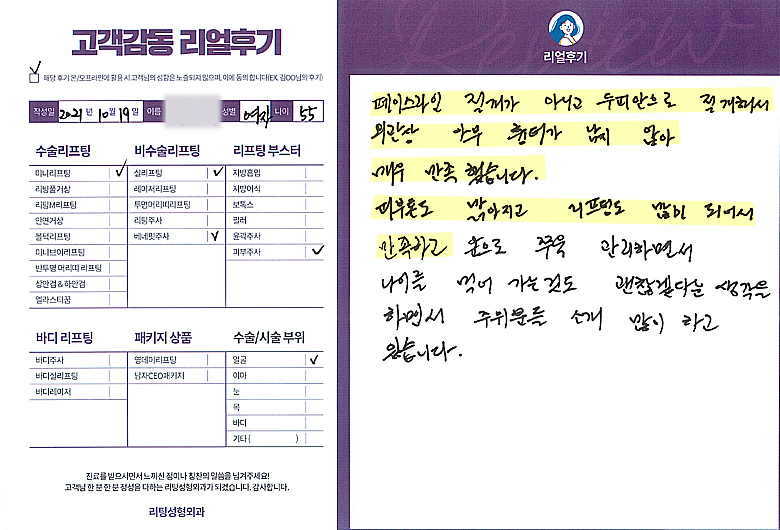 고객감동 리얼후기
해당 후기 온/오프라인에 활용 시 고객님의 성함은 노출되지 않으며, 이에 동의 합니다(EX. 김OO님의 후기)
작성일 2021년 10월 19일 이름 성별 여자 나이 55
수술리프팅
미니리프팅 ✓
리팅풀거상
리팅M리프팅
안면거상
볼턱리프팅
미니브이리프팅
반투명 머리띠 리프팅
상안검 & 하안검
엘라스티꿈
비수술리프팅
실리프팅 ✓
레이저리프팅
투명머리띠리프팅
리팅주사
베네핏주사 ✓
리프팅 부스터
지방흡입
지방이식
보톡스
필러
윤곽주사
피부주사 ✓
바디 리프팅
바디주사
바디실리프팅
바디레이저
패키지 상품
영데이리프팅
남자CEO패키지
수술/시술 부위
얼굴 ✓
이마
눈
목
바디
기타 ( )
진료를 받으시면서 느끼신 점이나 칭찬의 말씀을 남겨주세요!
고객님 한 분 한 분 정성을 다하는 리팅성형외과가 되겠습니다. 감사합니다.
리팅성형외과
Review
리얼후기
페이스라인 절개가 아니고 두피안으로 절개하셔서
외관상 아무 흉터가 남지 않아
매우 만족 했습니다.
피부톤도 맑아지고 리프팅도 많이 되어서
만족하고 앞으로 쭈욱 관리하면서
나이를 먹어 가는것도 괜찮겠다는 생각을
하면서 주위분들 소개 많이 하고
있습니다.